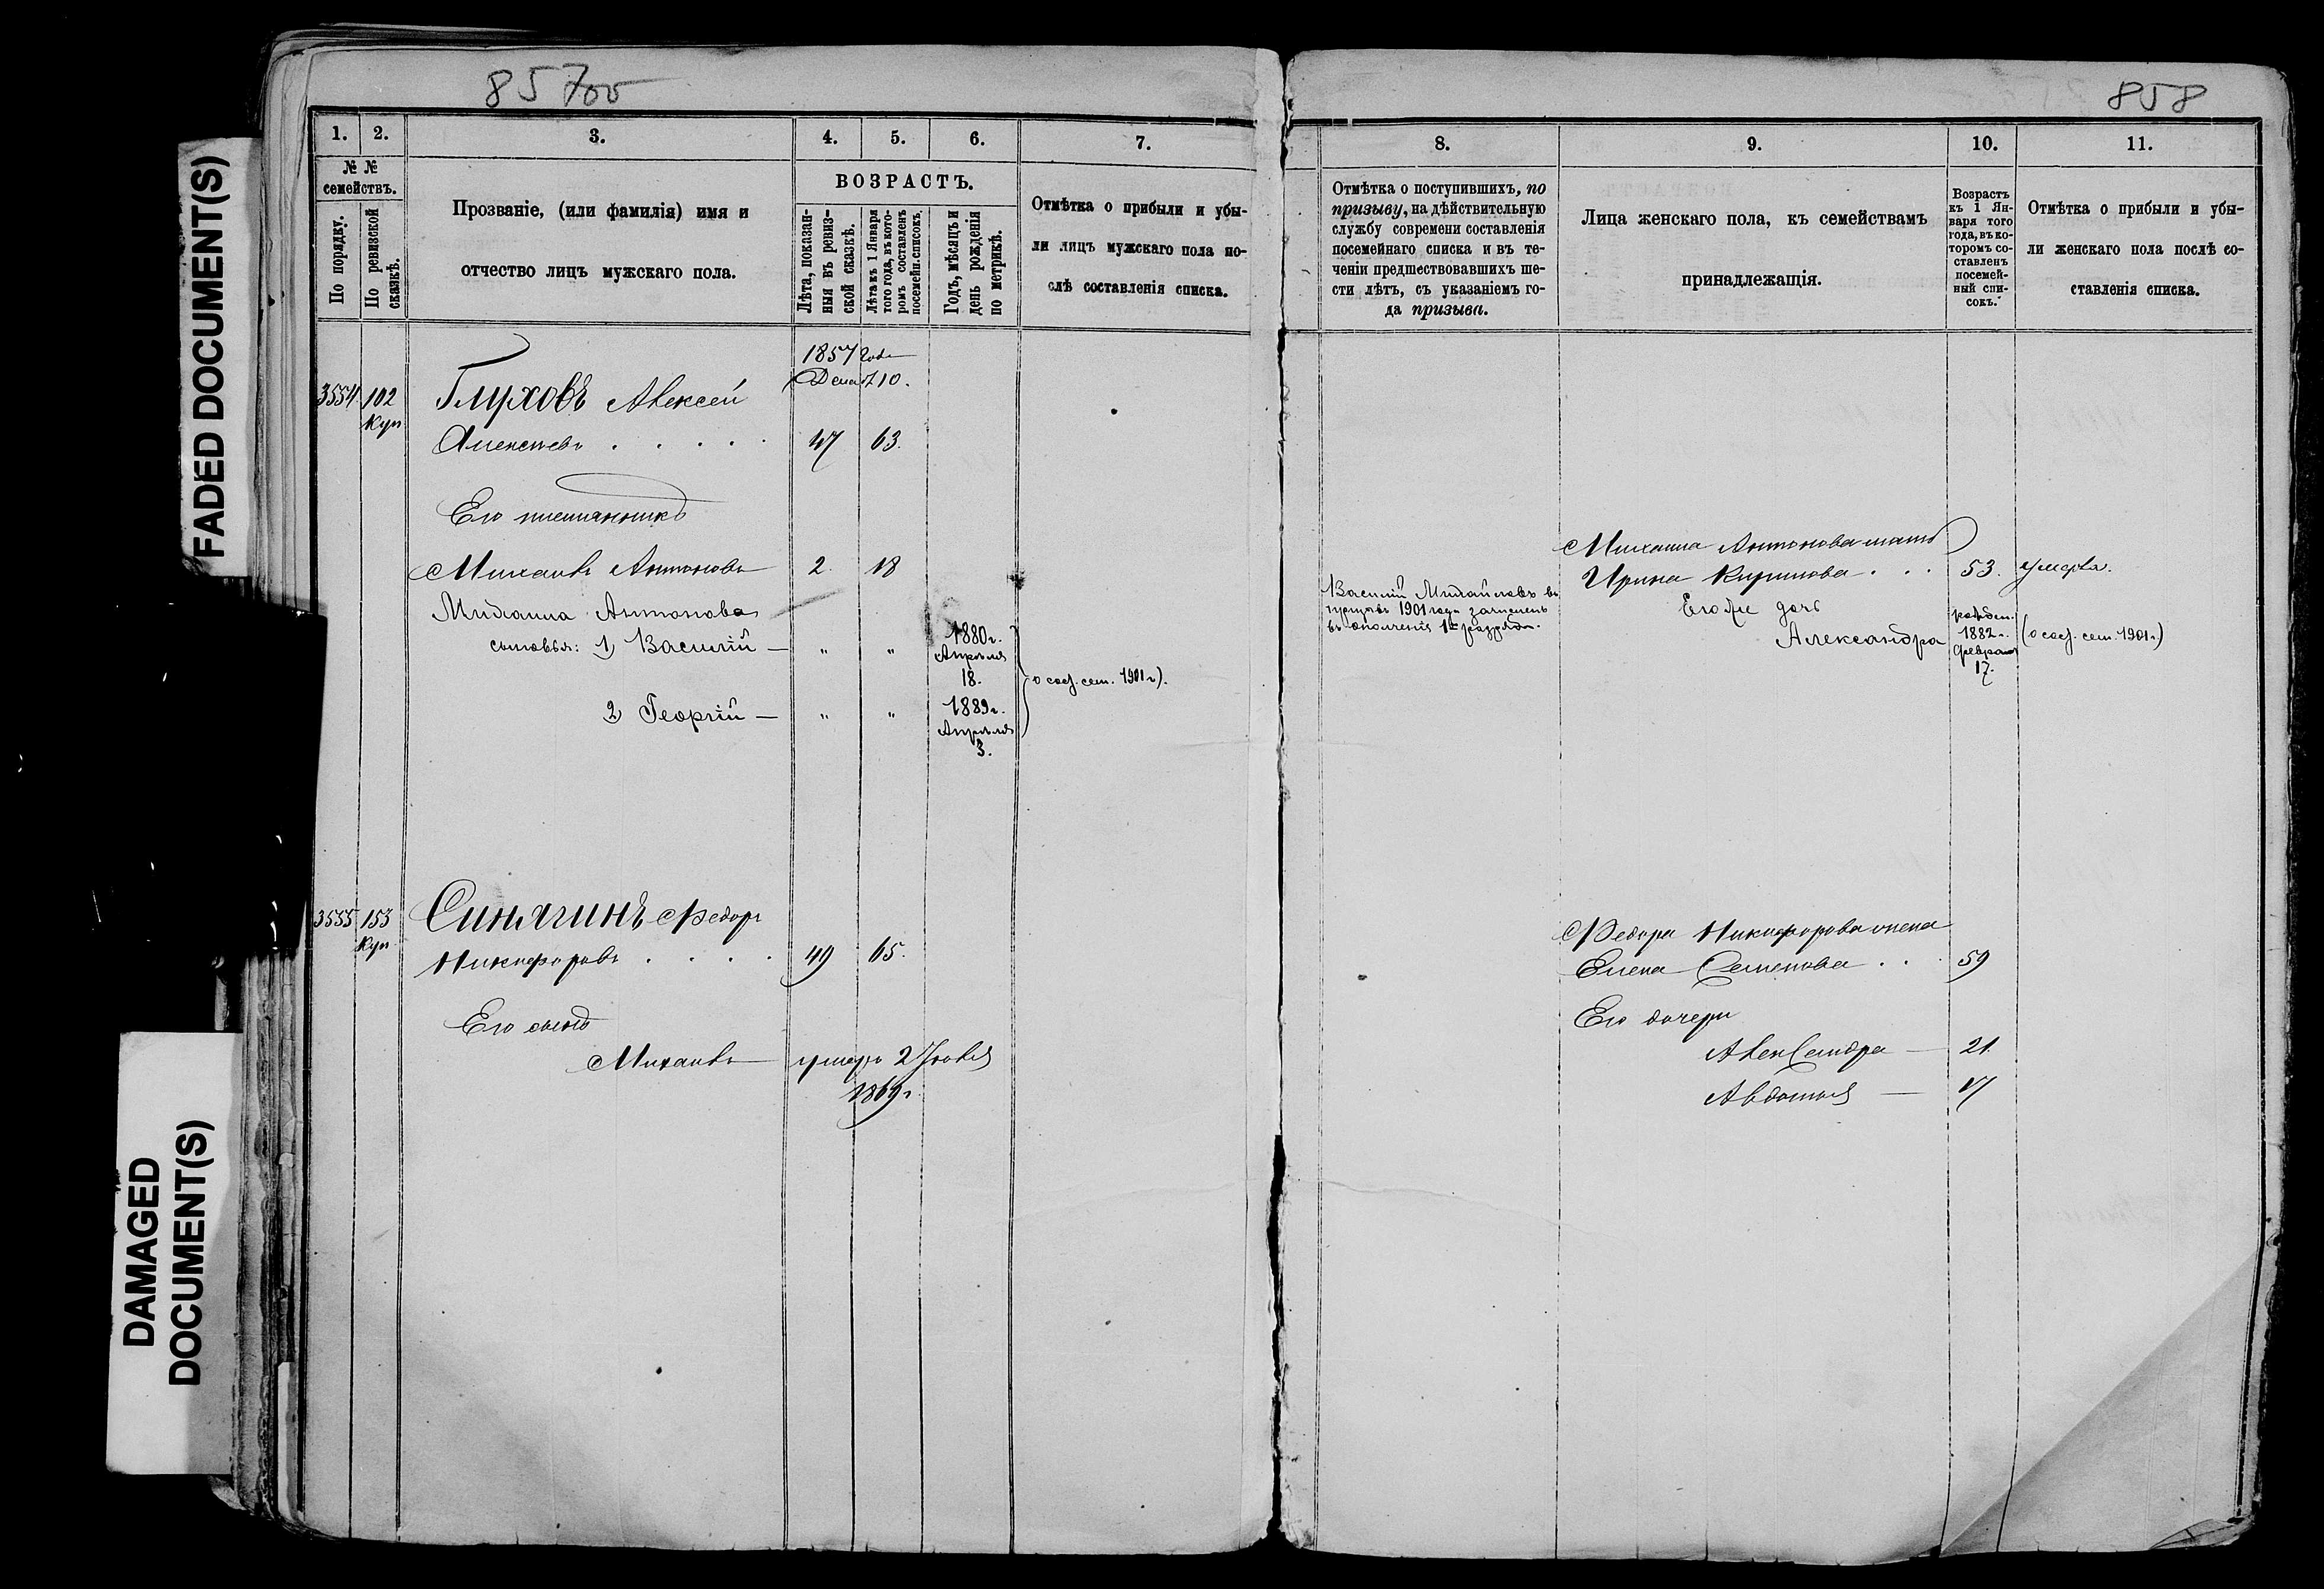 85700
858
FADED DOCUMENT(S)
DAMAGED
DOCUMENT(S)
1. 2. 3. 4. 5. 6. 7.
№ №
семействъ.
По порядку.
По ревизской
сказкѣ.
Прозваніе, (или фамилія) имя и
отчество лицъ мужскаго пола.
ВОЗРАСТЪ.
Лѣта, показан-
ныя въ ревиз-
ской сказкѣ.
Лѣта къ 1 Января
того года, въ кото-
ромъ составленъ
посемейн. списокъ.
Годъ, мѣсяцъ и
день рожденія
по метрикѣ.
Отмѣтка о прибыли и убы-
ли лицъ мужскаго пола по-
слѣ составленія списка.
1857 года
Дека 10.
3554 102 Глуховъ Алексей
Куп
Алексеевъ . . . . . 47 63.
Его племянникъ
Михаилъ Антоновъ 2. 18
Михаила Антонова
сыновья: 1) Василій — " " 1880 г.
Апрѣля
18.
(о соч. сем. 1901 г.).
2) Георгій — " " 1889 г.
Апрѣля
3.
3555 153 Синягинъ Федоръ
Куп
Никифоровъ . . . . 49 65.
Его сынъ
Михаилъ — умеръ 2 Іюля
1869 г.
8. 9. 10. 11.
Отмѣтка о поступившихъ, по
призыву, на дѣйствительную
службу современи составленія
посемейнаго списка и въ те-
ченіи предшествовавшихъ ше-
сти лѣтъ, съ указаніемъ го-
да призыва.
Лица женскаго пола, къ семействамъ
принадлежащія.
Возрастъ
къ 1 Ян-
варя того
года, въ ко-
торомъ со-
ставленъ
посемей-
ный спи-
сокъ.
Отмѣтка о прибыли и убы-
ли женскаго пола послѣ со-
ставленія списка.
Василій Михайловъ въ
призывъ 1901 года зачисленъ
въ ополченіе 1го разряда.
Михаила Антонова мать
Ирина Кирилова . . . 53. умерла.
Его же дочь
Александра
рожден.
1882 г.
Февраля
17.
(о соч. сем. 1901 г.)
Федора Никифорова жена
Елена Семенова . . . 59
Его дочери
Александра — 21.
Авдотья — 17